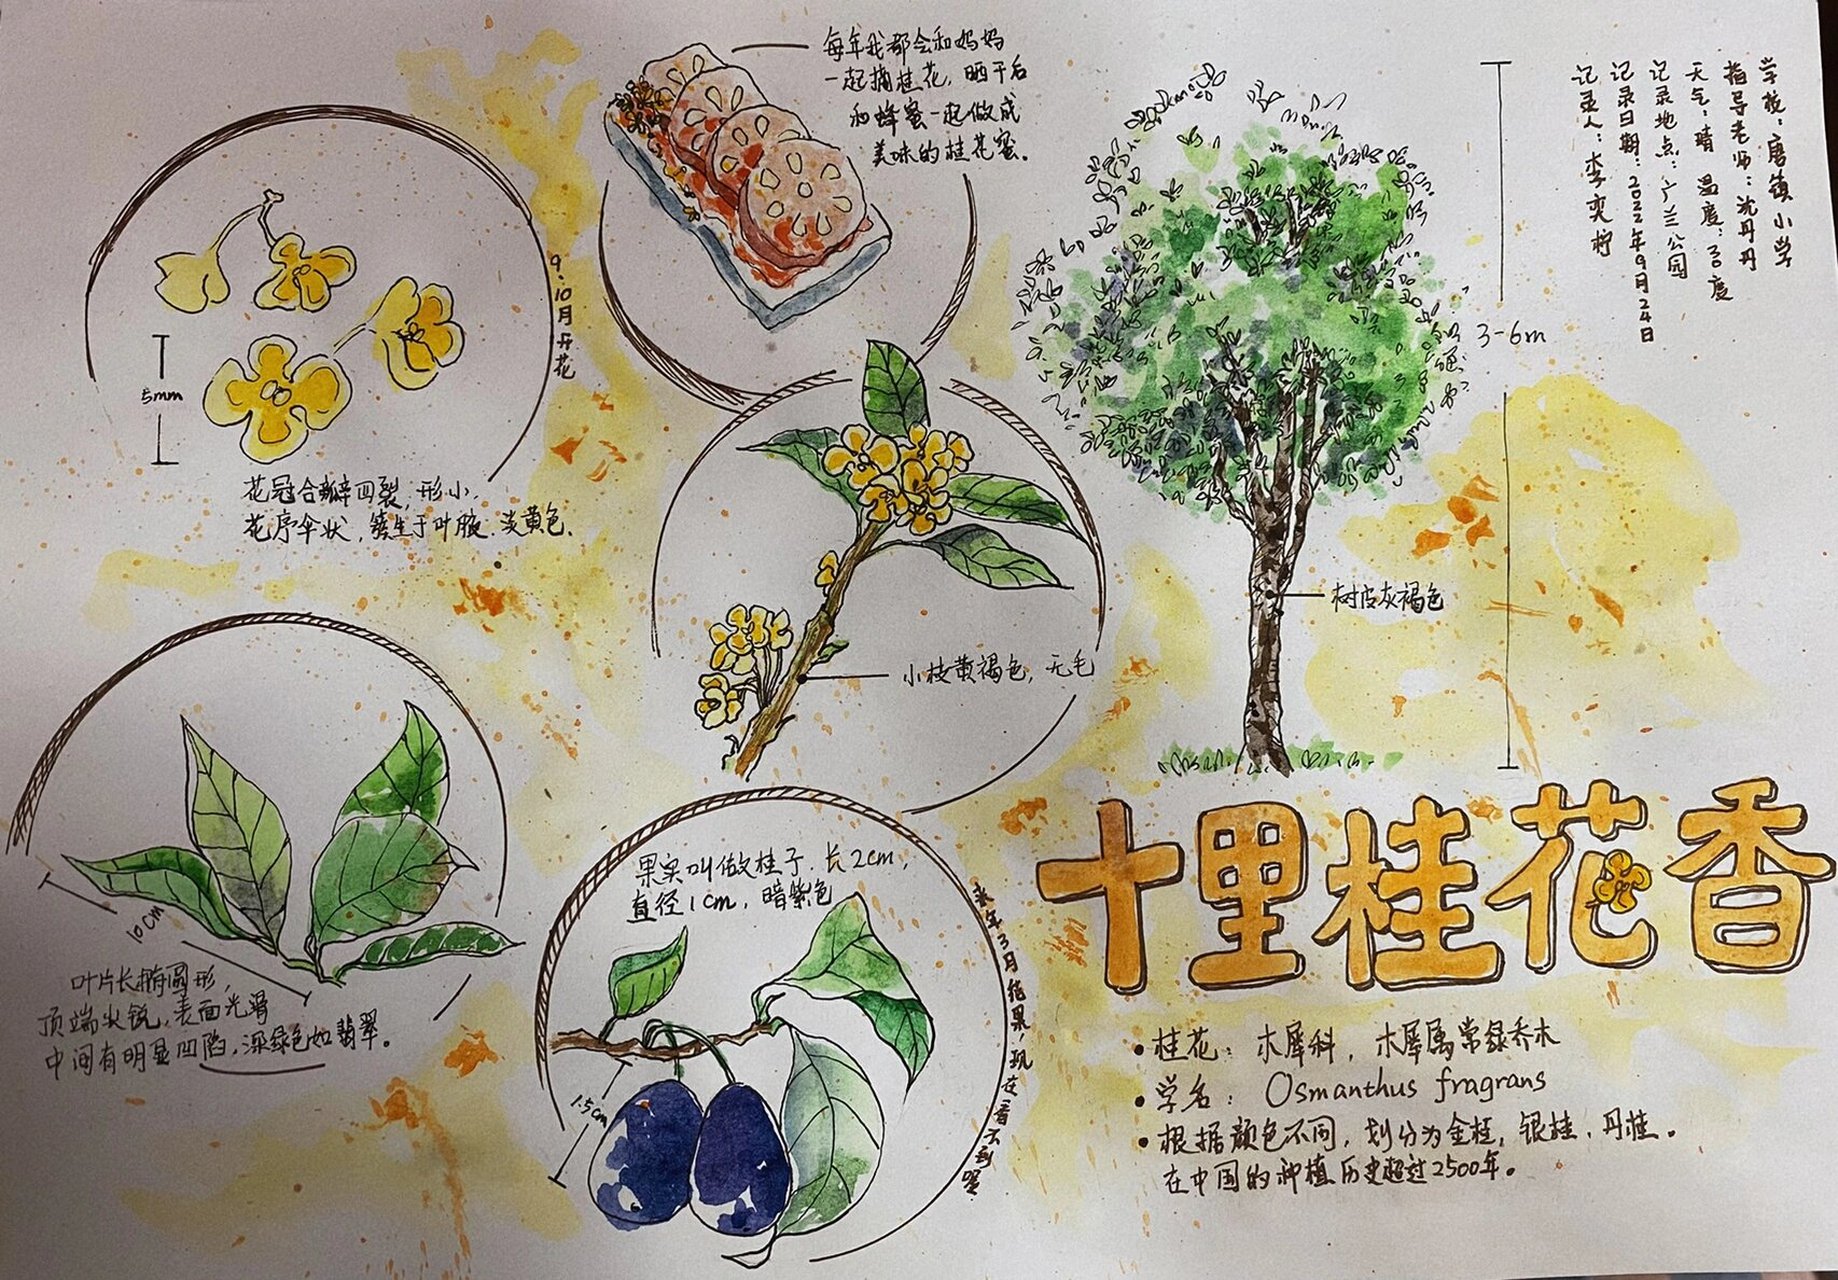 学校：唐镇小学
指导老师：沈丹丹
天气：晴 温度：30度
记录地点：广兰公园
记录日期：2022年9月24日
记录人：李奕柠
每年我都会和妈妈
一起摘桂花，晒干后
和蜂蜜一起做成
美味的桂花蜜。
9.10月开花
5mm
花冠合瓣四裂，形小，
花序伞状，簇生于叶腋.淡黄色.
3-6m
树皮灰褐色
小枝黄褐色，无毛
10cm
叶片长椭圆形，
顶端尖锐，表面光滑
中间有明显凹陷，深绿色如翡翠。
果实叫做桂子.长2cm，
直径1cm，暗紫色
来年3月结果，现在看不到喔
1.5cm
十里桂花香
·桂花：木犀科，木犀属常绿乔木
·学名：Osmanthus fragrans
·根据颜色不同，划分为金桂，银桂、丹桂。
在中国的种植历史超过2500年。